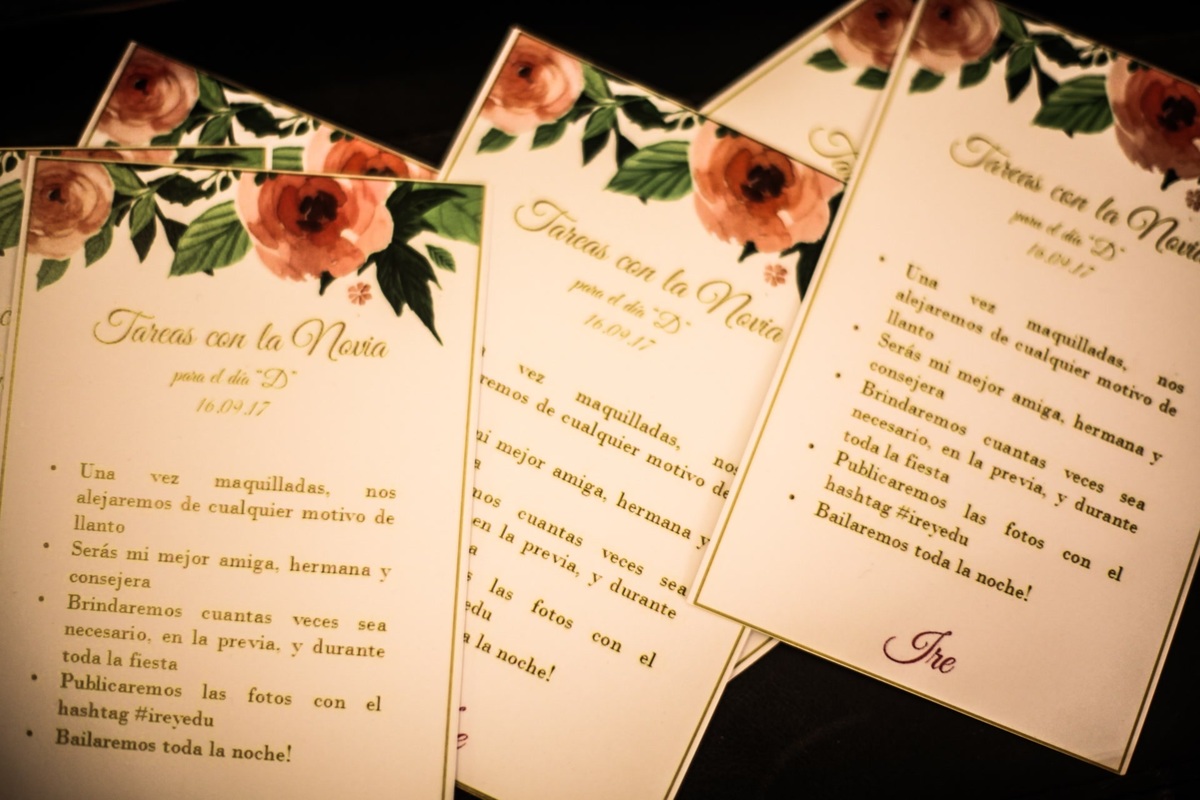 Tareas con la Novia
para el día "D"
16.09.17
• Una vez maquilladas, nos
alejaremos de cualquier motivo de
llanto
• Serás mi mejor amiga, hermana y
consejera
• Brindaremos cuantas veces sea
necesario, en la previa, y durante
toda la fiesta
• Publicaremos las fotos con el
hashtag #ireyedu
• Bailaremos toda la noche!
Tareas con la Novia
para el día "D"
16.09.17
vez maquilladas, nos
remos de cualquier motivo de
mi mejor amiga, hermana y
a
nos cuantas veces sea
en la previa, y durante
a
s las fotos con el
edu
a la noche!
e
Tareas con la Novia
para el día "D"
16.09.17
• Una vez maquilladas, nos
alejaremos de cualquier motivo de
llanto
• Serás mi mejor amiga, hermana y
consejera
• Brindaremos cuantas veces sea
necesario, en la previa, y durante
toda la fiesta
• Publicaremos las fotos con el
hashtag #ireyedu
• Bailaremos toda la noche!
Ire